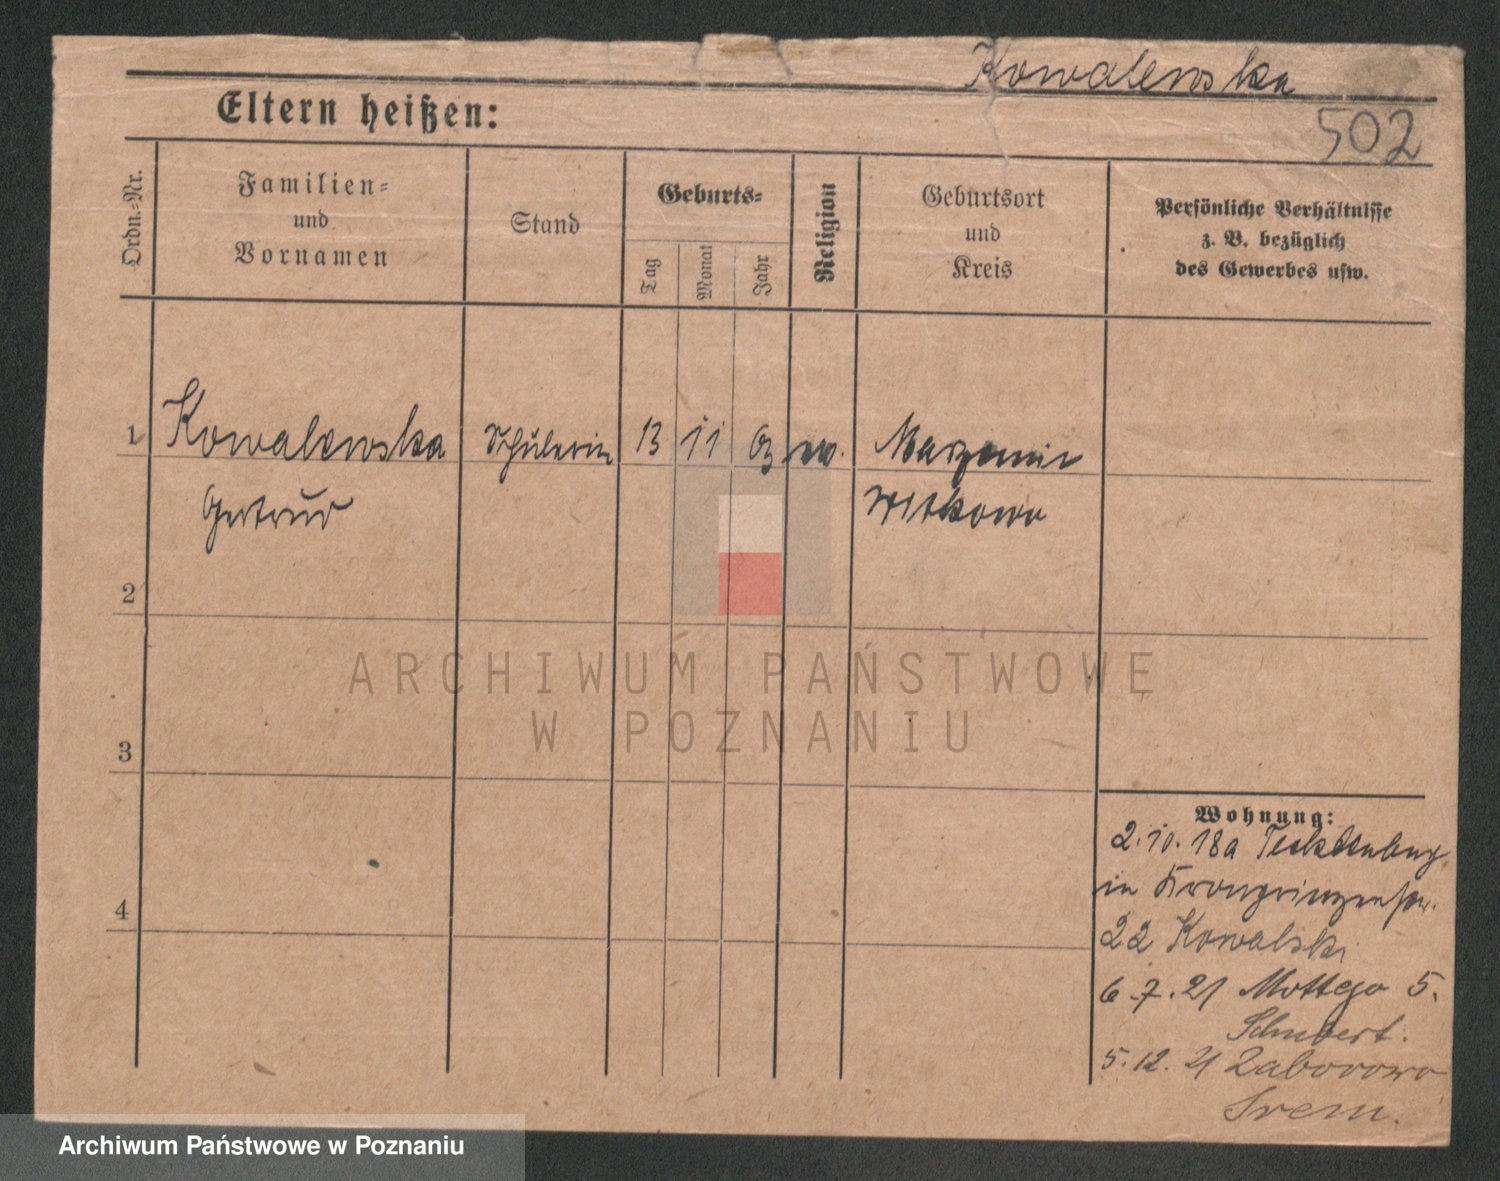 Kowalewska
Eltern heißen:
502
Ordn.-Nr.
Familien-
und
Vornamen
Stand
Geburts-
Tag
Monat
Jahr
Religion
Geburtsort
und
Kreis
Persönliche Verhältnisse
z. B. bezüglich
des Gewerbes usw.
1 Kowalewska Schülerin 13 11 03 ev.
Gertrud Witkowo
2
3
4
ARCHIWUM PAŃSTWOWE
W POZNANIU
Wohnung:
2.10.18a
in Kronprinzenstr.
22 Kowalski
6.7.21 5.
Schubert.
5.12.21 Zaborowo
Srem.
Archiwum Państwowe w Poznaniu